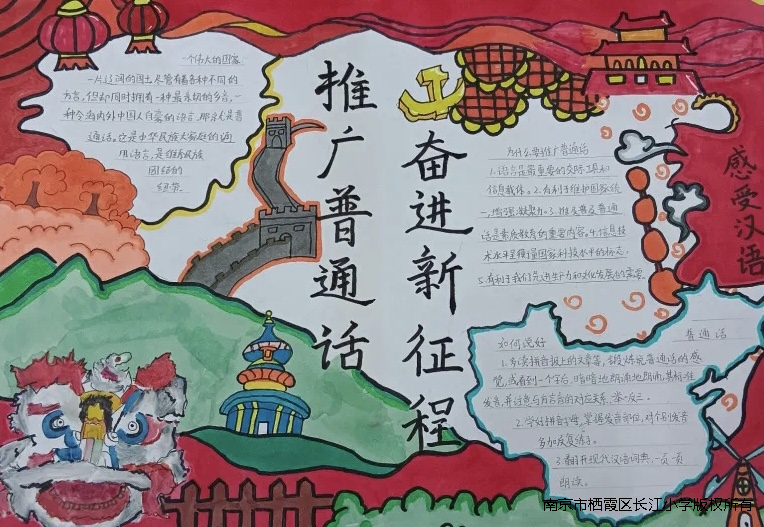 推广普通话
奋进新征程
感受汉语
一个伟大的国家
一片辽阔的国土尽管有着各种不同的
方言，但却同时拥有一种最亲切的乡音，一
种令海内外中国人自豪的语言，那就是普
通话。它是中华民族大家庭的通
用语言，是维系民族
团结的
纽带。
为什么要推广普通话
1.语言是最重要的交际工具和
信息载体。2.有利于维护国家统
一，增强凝聚力。3.推广普及普通
话是素质教育的重要内容。4.信息技
术水平是衡量国家科技水平的标志。
5.有利于我们先进生产力和文化发展的需要
如何说好
普通话
1.多读拼音报上的文章等，锻炼说普通话的感
觉，或看到一个字后，暗暗地朗诵地朗诵，其标准
发音，并注意与方言音的对应关系，举一反三。
2.学好拼音字母，掌握发音部位，对个别发音
多加反复练习。
3.翻开现代汉语词典，一页一页
朗读。
南京市栖霞区长江小学版权所有